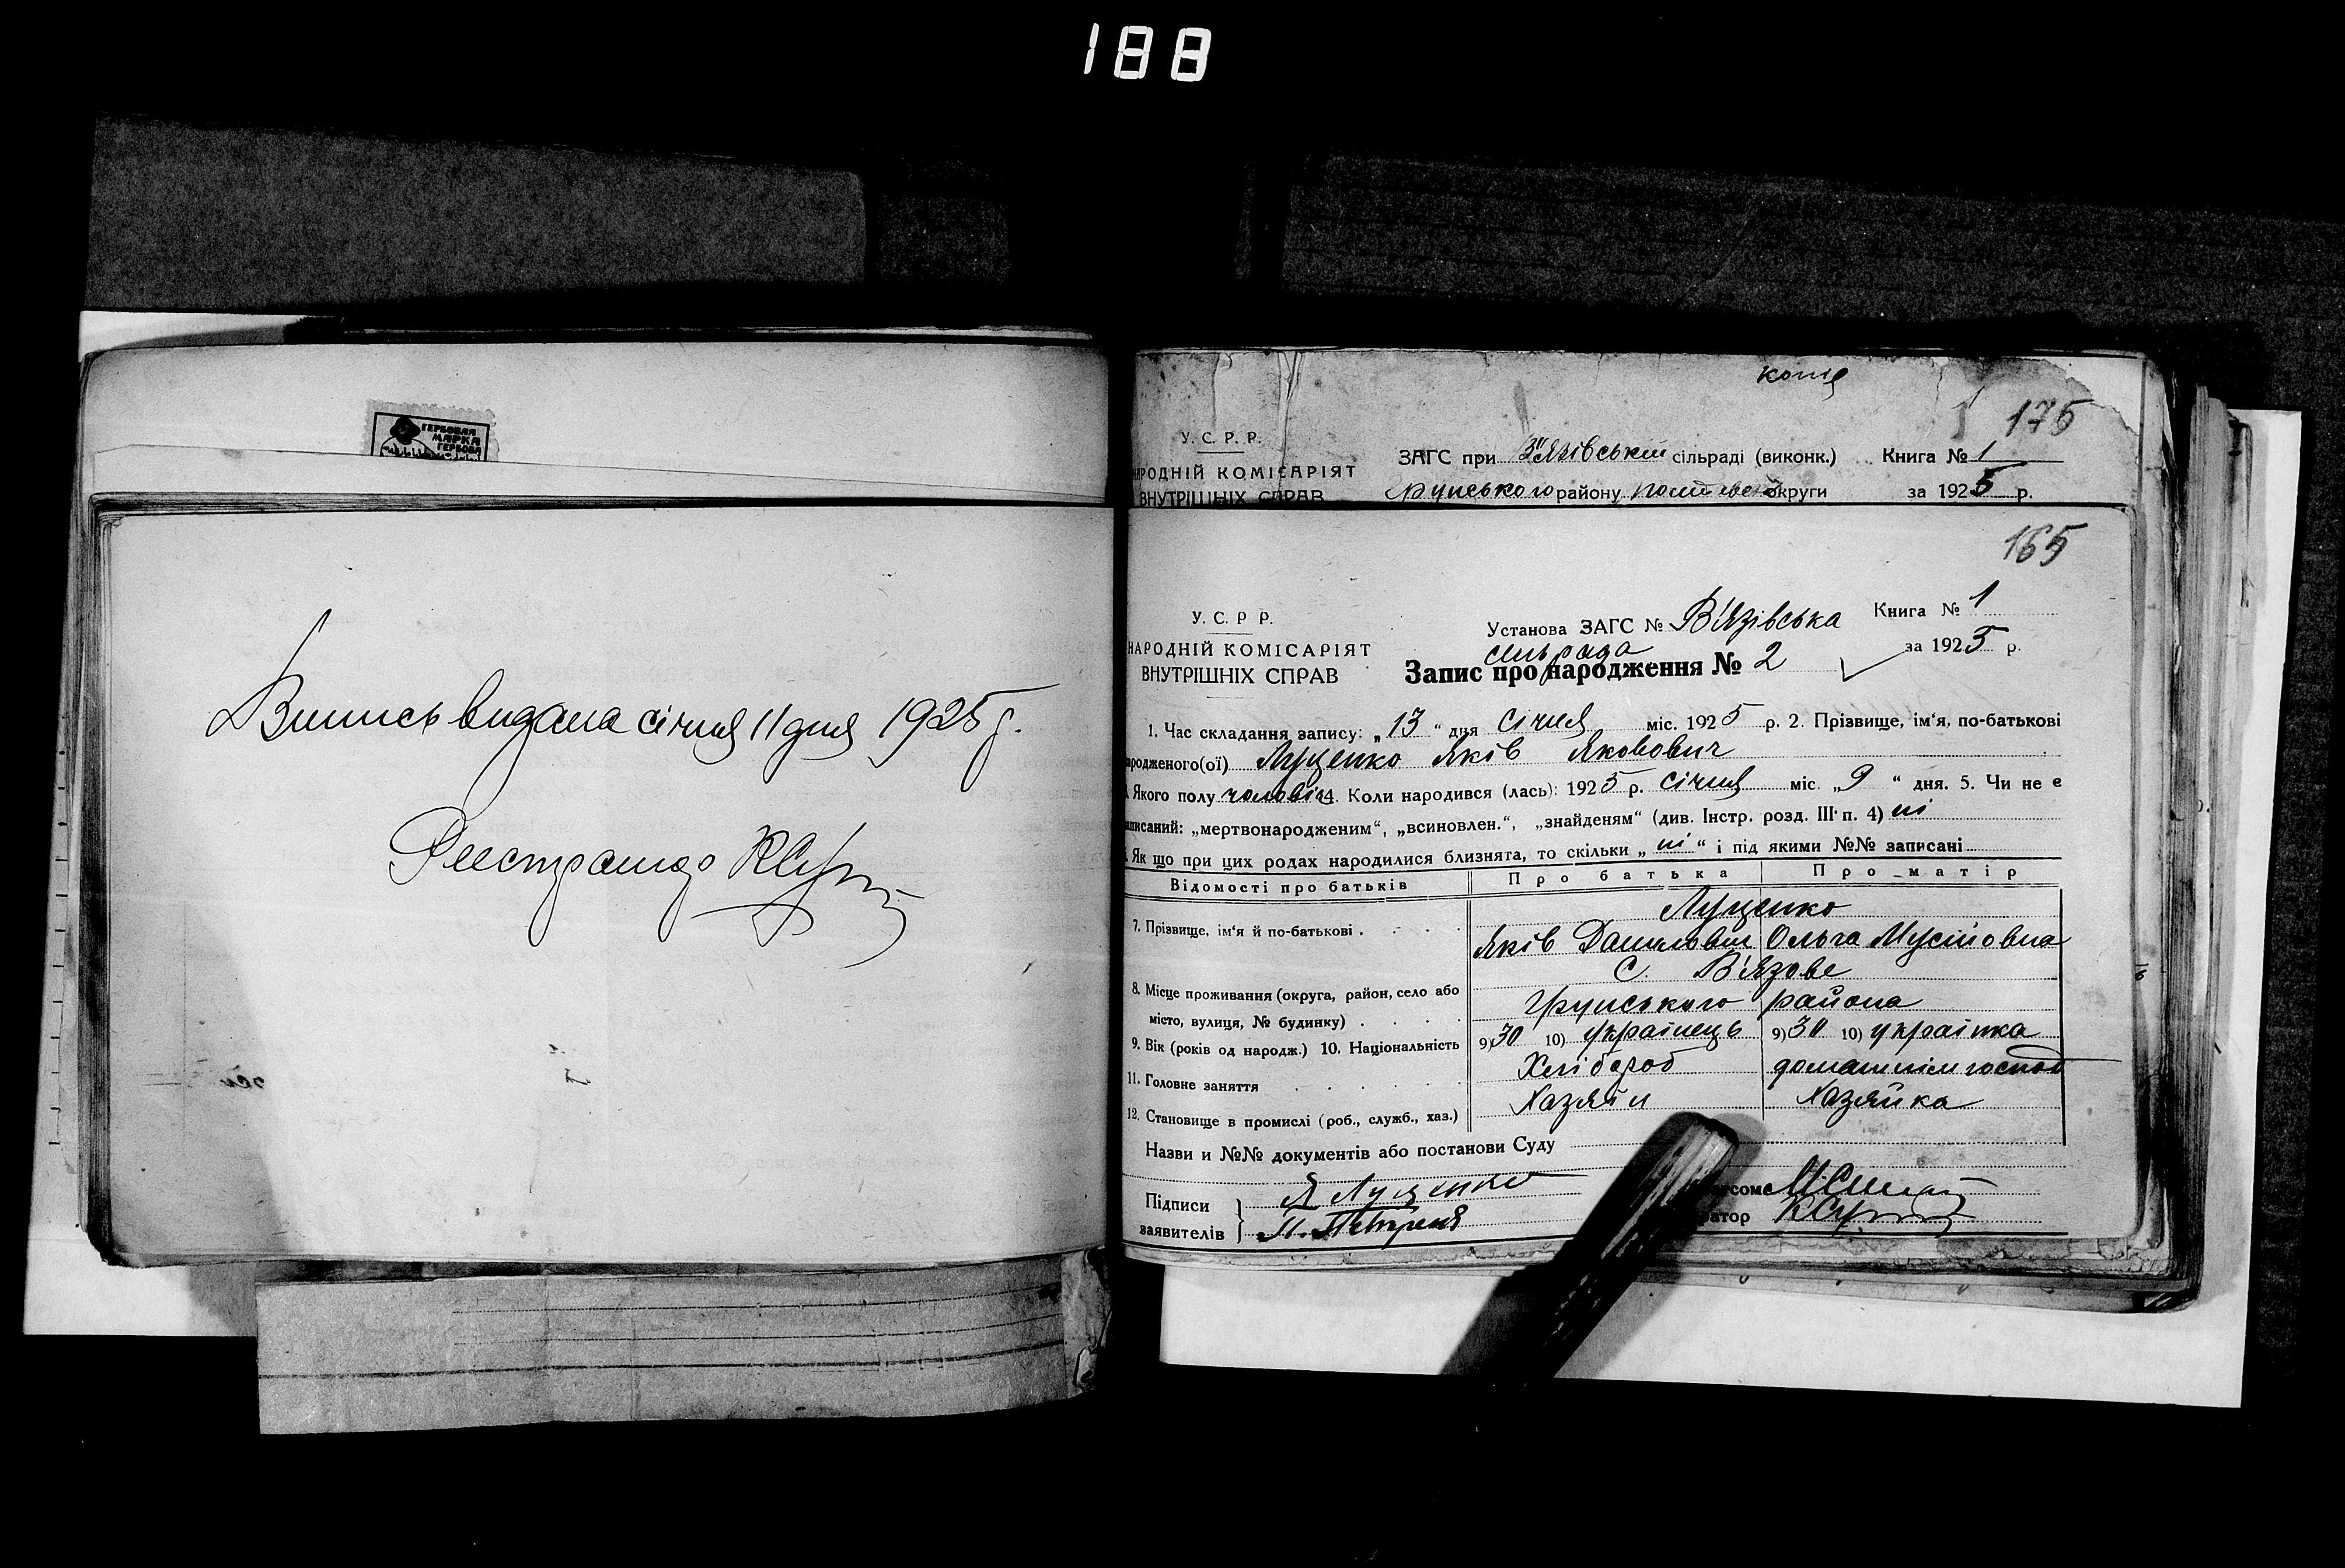 188
ГЕРБОВАЯ
МАРКА
ГЕРБОВА
Випись видана січня 11 дня 1925 р.
Реєстратор
копія
175
У. С. Р. Р.
НАРОДНІЙ КОМІСАРІЯТ
ВНУТРІШНІХ СПРАВ
ЗАГС при В'язівській сільраді (виконк.) Книга № 1
Грунського району Полтавської округи за 1925 р.
165
У. С. Р Р.
НАРОДНІЙ КОМІСАРІЯТ
ВНУТРІШНІХ СПРАВ
Установа ЗАГС № В'язівська Книга № 1
сільрада за 1925 р.
Запис про народження № 2
1. Час складання запису: „13“ дня січня міс. 1925 р. 2. Прізвище, ім'я, по-батькові
народженого(ої) Луценко Яків Якович
Якого полу чоловіч 4. Коли народився (лась): 1925 р. січня міс „9“ дня. 5. Чи не є
записаний: „мертвонародженим“, „всиновлен.“, „знайденям“ (див. Інстр. розд. III п. 4) ні
Як що при цих родах народилися близнята, то скільки „ні“ і під якими №№ записані
Відомості про батьків Про батька Про матір
Луценко
7. Прізвище, ім'я й по-батькові Яків Данилович Ольга Мусіївна
с. В'язове
8. Місце проживання (округа, район, село або
місто, вулиця, № будинку) Грунського района
9. Вік (років од народж.) 10. Національність 9) 30 10) українець 9) 30 10) українка
11. Головне заняття Хлібороб домашнім господ
12. Становище в промислі (роб., служб., хаз.) Хазяїн Хазяйка
Назви и №№ документів або постанови Суду
Підписи
заявителів
Я Луценко